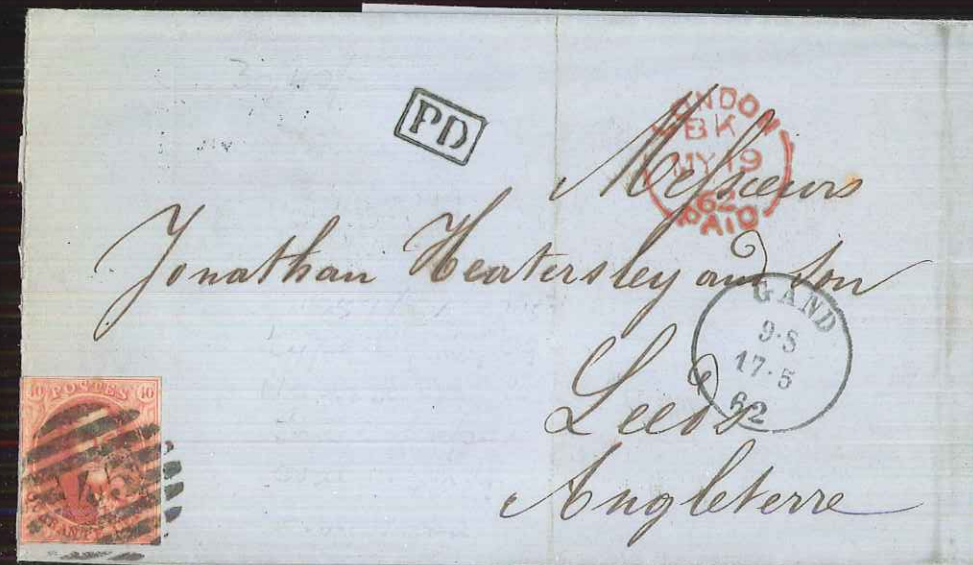 PD
LONDON
BK
MY 19
62
PAID
Messieurs
Jonathan Heatersley and Son
GAND
9·S
17·5
62
Leeds
Angleterre
10 POSTES 40